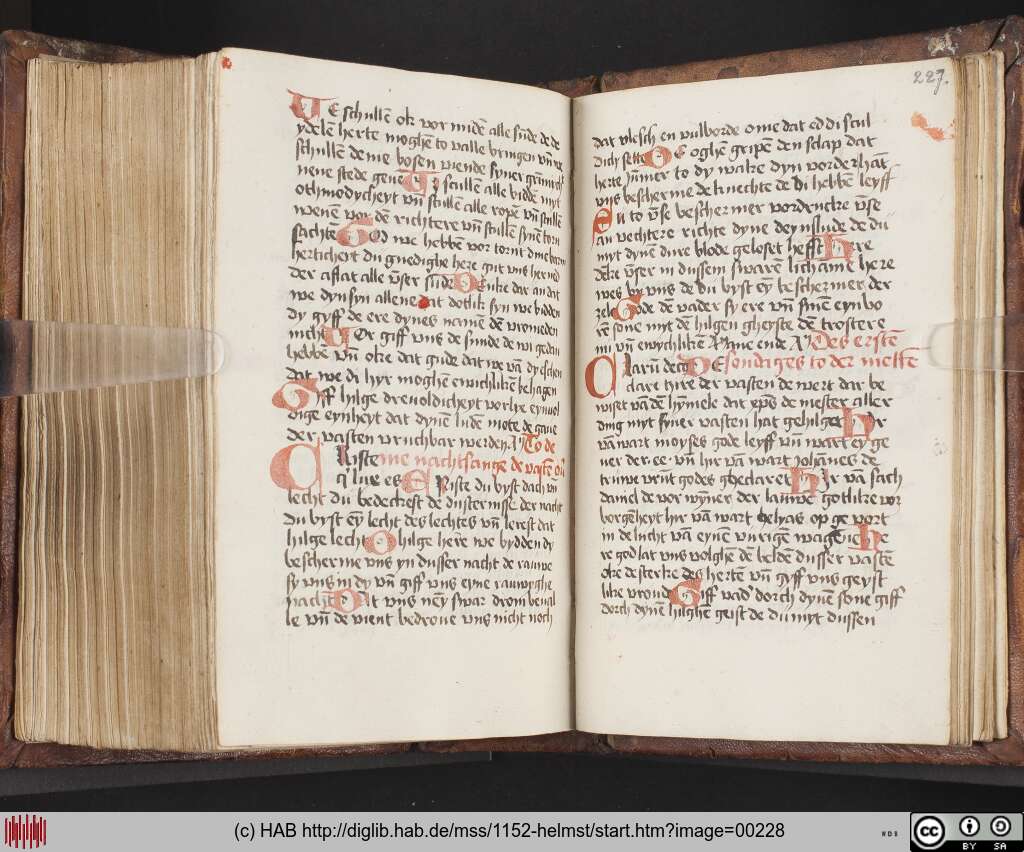 We schullē ok vor midē alle sūde de de
ydelē herte moghē to valle bringen vn̄
schullē deme bosen viende syner
nene stede geuē Wy scullē alle biddē myt
othmodycheyt vn̄ scullē alle ropē vn̄ scullē
wenē vor dē richtere vn̄ scullē synē torn
sachte God we hebbē vor tornt dine barm
herticheyt du gnedighe here gut vns her ned
der aflat alle vnser sūde Denke dar an dat
we dyn syn allene dat dotlik syn we bidden
dy gyff de ere dynes namē dē vromeden
nicht Vor giff vns de sunde de wi gedan
hebbē vn̄ oke dat gude dat we vā dy eschen
dat we di hyr moghē ewichlikē behagen
Giff hilge dreuoldicheyt vorlye eynuol
dige eynheyt dat dynē ludē mote de gaue
der vasten vruchtbar werden To de
Criste me nachtsange de vastē
q' lux es Criste du byst dach vn̄
lecht du bedeckest de dusternisse der nacht
du byst ey lecht des lechtes vn̄ lerest dat
hilge lecht O hilge here we bydden dy
bescherme vns yn dusser nacht de rauwe
sy vns in dy vn̄ giff vns eyne rauwyghe
nacht Dat vns neȳ swar drom beual
le vn̄ de vient bedroue vns nicht noch
227.
dat vlesch en vulborde ome dat ed di scul
dich sette De oghē gripē den slap dat
herte ȳmer to dy wake dyn vorderhāt
vns bescherme de knechte de di hebbē leyff
Eu to vse beschermer vordrucke vse
an vechtere richte dyne deynslude de du
myt dynē dure blode geloset hefft Here
dēke vnser in dussem swarē lichame here
wes by vns de du byst eȳ beschermer der
zele Gode dē vader sy ere vn̄ sinē eynbo
rē sone myt dē hilgen gheyste dē trostere
nu vn̄ ewychlikē Ane ende Des erstē
Clarū decq De sondages to der messē
clare tzire der vasten de wert dar be
wiset vā dē hymele dat xpūs de mester aller
ding myt syner vasten hat gehilget Hyr
vā wart moyses gode leyff vn̄ wart ey ge
uer der ee vn̄ hir vā wart Johānes de
truwe vrūt godes gheclaret Hyr vā sach
daniel de vor wȳner der lauwē gotlike vor
borgēheyt hir vā wart Helyas op ge vort
in de lucht vā eynē vurigē wagene He
re god lat vns volghē dē beldē dusser vastē
oke de sterke des hertē vn̄ gyff vns geyst
like vroude Giff vad' dorch dynē sone giff
dorch dynē hilghē geist de du myt dussen
(c) HAB http://diglib.hab.de/mss/1152-helmst/start.htm?image=00228
WDB
cc BY SA